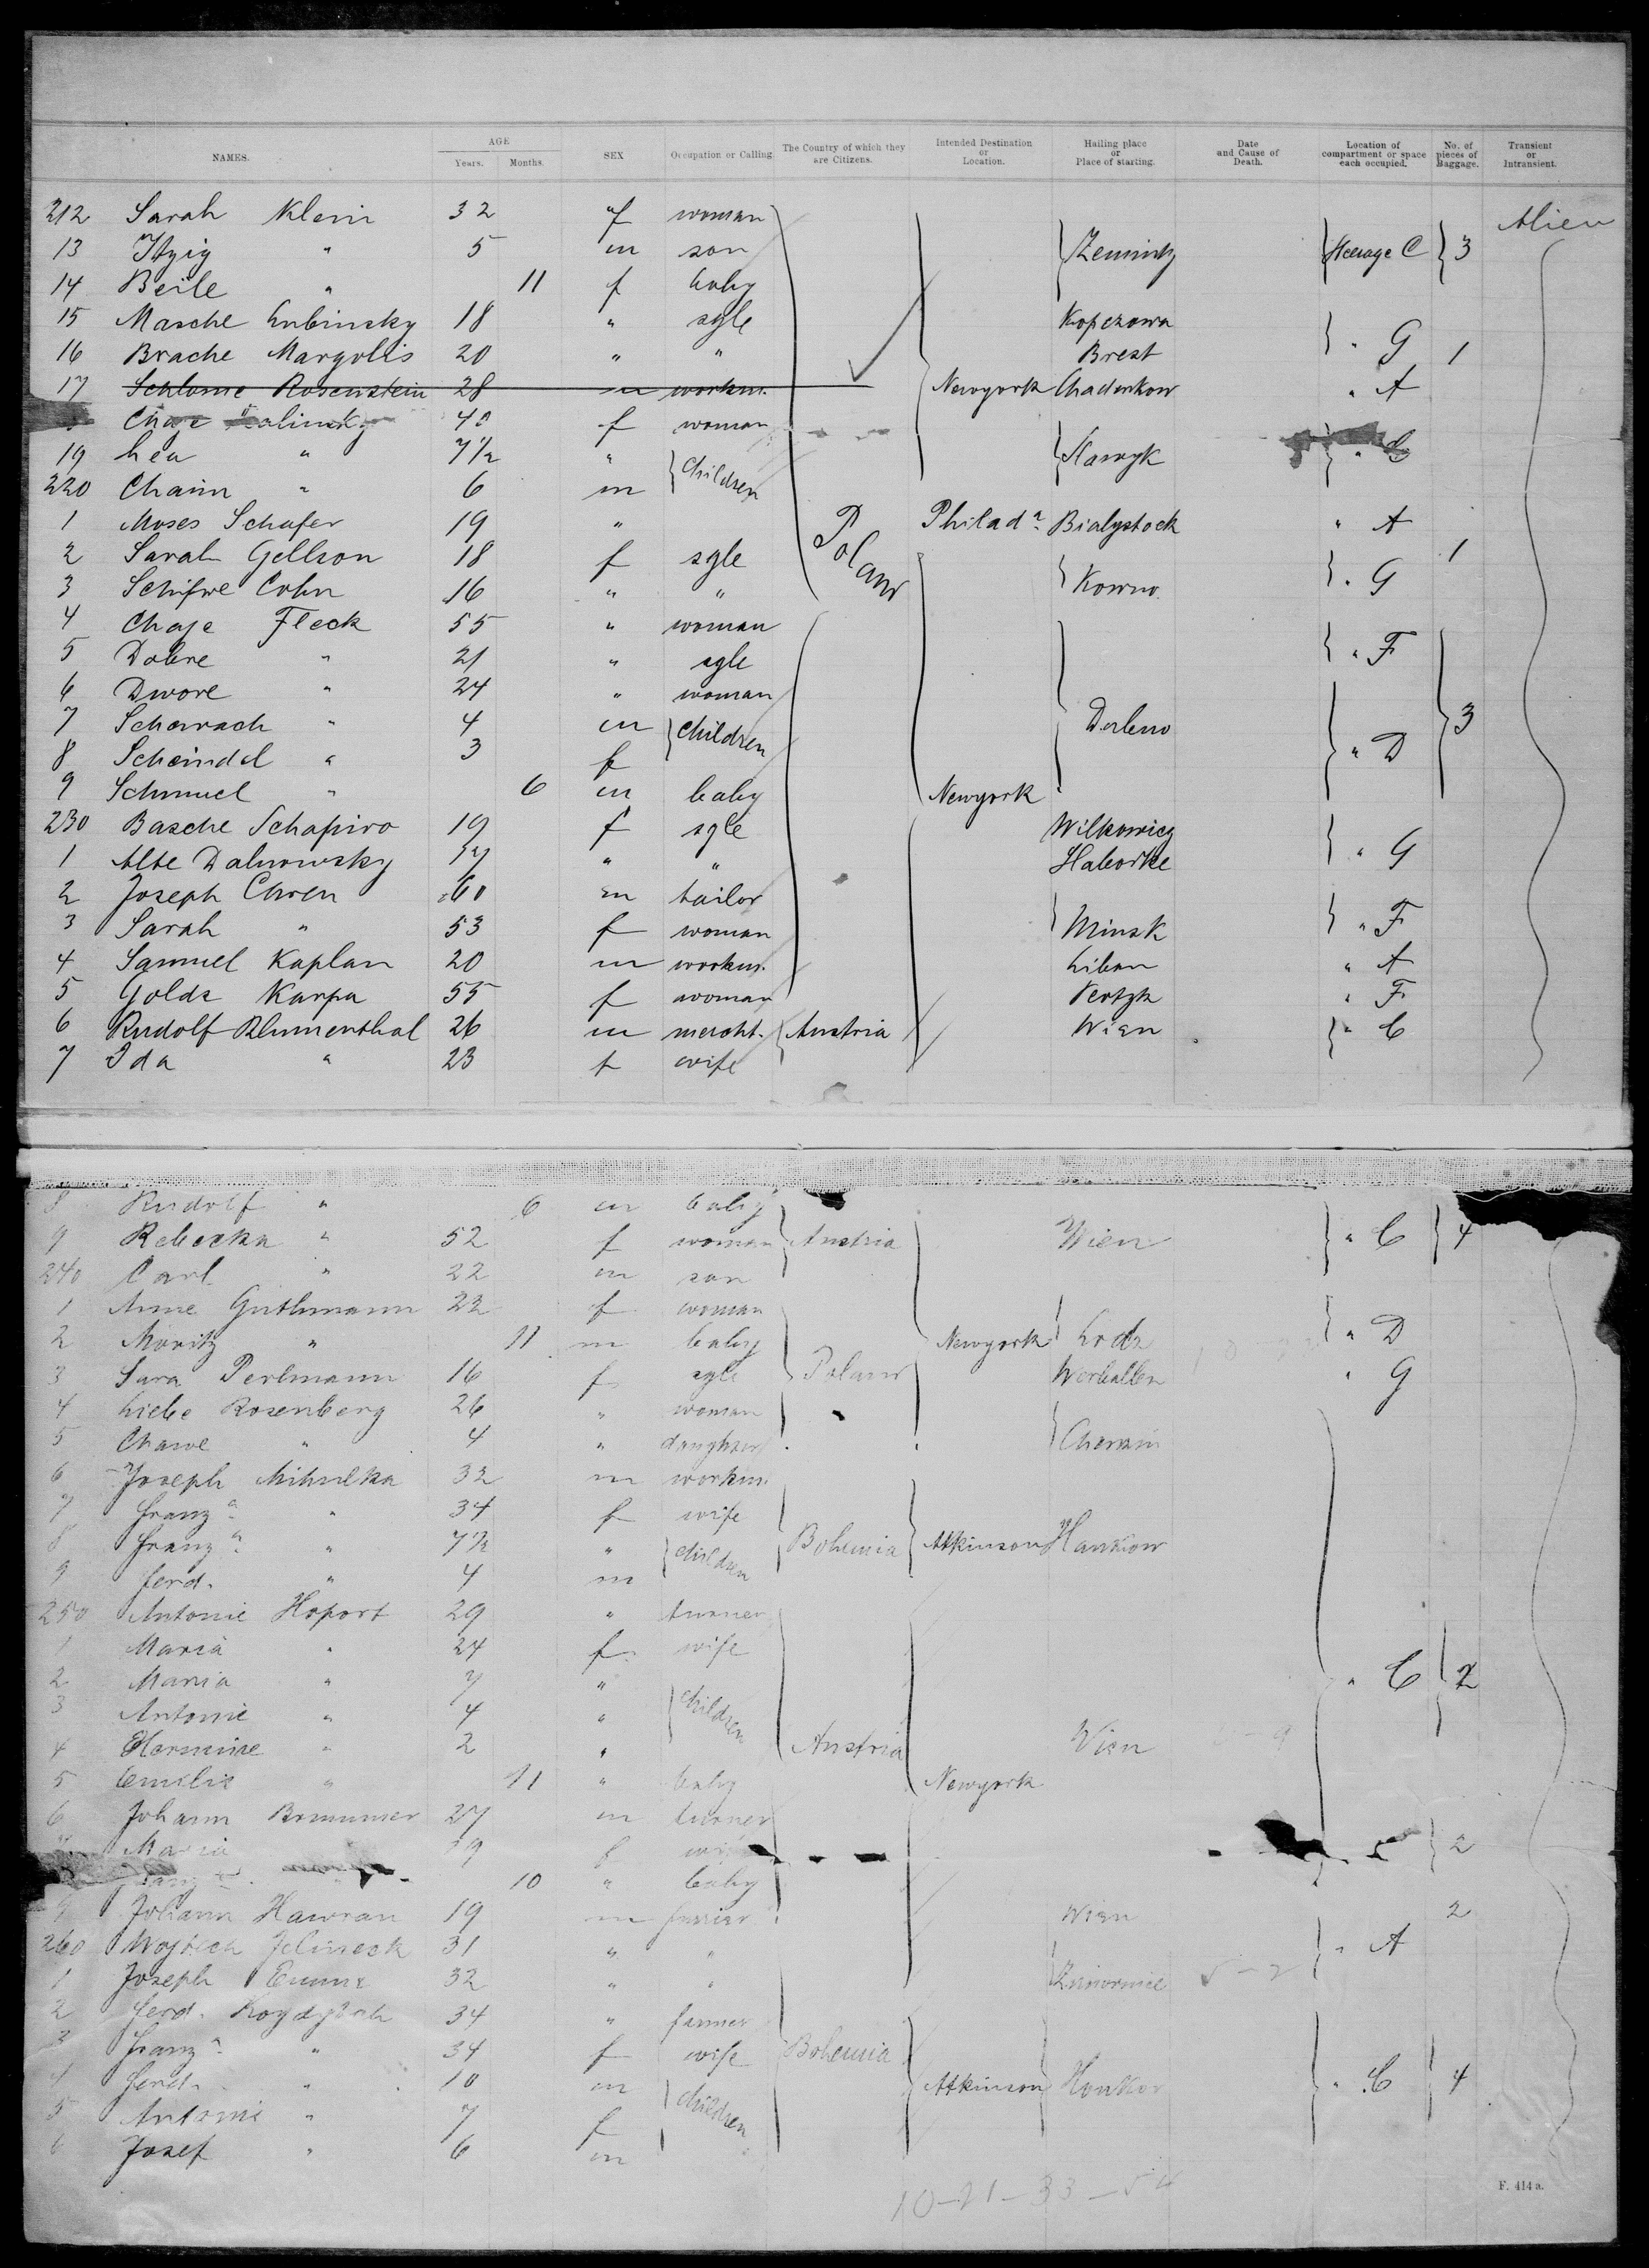 NAMES. AGE Years. Months. SEX Occupation or Calling. The Country of which they are Citizens. Intended Destination or Location. Hailing place or Place of starting. Date and Cause of Death. Location of compartment or space each occupied. No. of pieces of Baggage. Transient or Intransient.
212 Sarah Klein 32 f woman Alien
13 Itzig " 5 m son Steerage C 3
14 Beile " 11 f baby
15 Masche Lubinsky 18 " sgle
16 Brache Margolis 20 " " Brest " G 1
17 Schlome Rosenstein 28 m workm. Newyork " A
Chaje 40 f woman
19 Lea " 7 1/2 " Children
220 Chaim " 6 m
1 Moses Schafer 19 " Poland Philada. Bialystock " A
2 Sarah Gellson 18 f sgle 1
3 Schifre Cohn 16 " " Kowno " G
4 Chaje Fleck 55 " woman
5 Dobre " 21 " sgle " F
6 Dwore " 24 " woman
7 " 4 m Children 3
8 Scheindel " 3 f " D
9 Schmuel " 6 m baby Newyork
230 Basche Schapiro 19 f sgle
1 Alte 17 " " " G
2 Joseph 60 m tailor
3 Sarah " 53 f woman Minsk " F
4 Samuel Kaplan 20 m workm. Libau " A
5 Golda Karpa 55 f woman " F
6 Rudolf Blumenthal 26 m mercht. Austria Wien " C
7 Ida " 23 f wife
8 Rudolf " 6 m baby
9 Rebecka " 52 f woman Austria Wien " C 4
240 Carl " 22 m son
1 Anne Guthmann 22 f woman
2 Moritz " 11 m baby Newyork Lodz " D
3 Sara Perlmann 16 f sgle Poland Werballen " G
4 Liebe Rosenberg 26 " woman
5 Chawe " 4 " daughter
6 Joseph Mihulka 32 m workm.
7 Franza " 34 f wife
8 Franza " 7 1/2 " Children Bohemia Atkinson Hankow
9 Ferd. " 4 m
250 Antonie Hoport 29 " turner
1 Maria " 24 f wife
2 Maria " 7 " " C 2
3 Antonie " 4 " Children
4 Hermine " 2 " Austria Wien
5 Emilie " 11 " baby Newyork
6 Johann Brummer 27 m turner
Maria f 2
10 " baby
9 Johann Hawran 19 m Wien 2
260 Wojtech Jelineck 31 " " " A
1 Joseph 32 " "
2 Ferd. 34 " farmer
3 Franza " 34 f wife Bohemia
4 Ferd. " 10 m Atkinson " C 4
5 Antonie " 7 f Children
6 Josef " 6 m
F. 414 a.